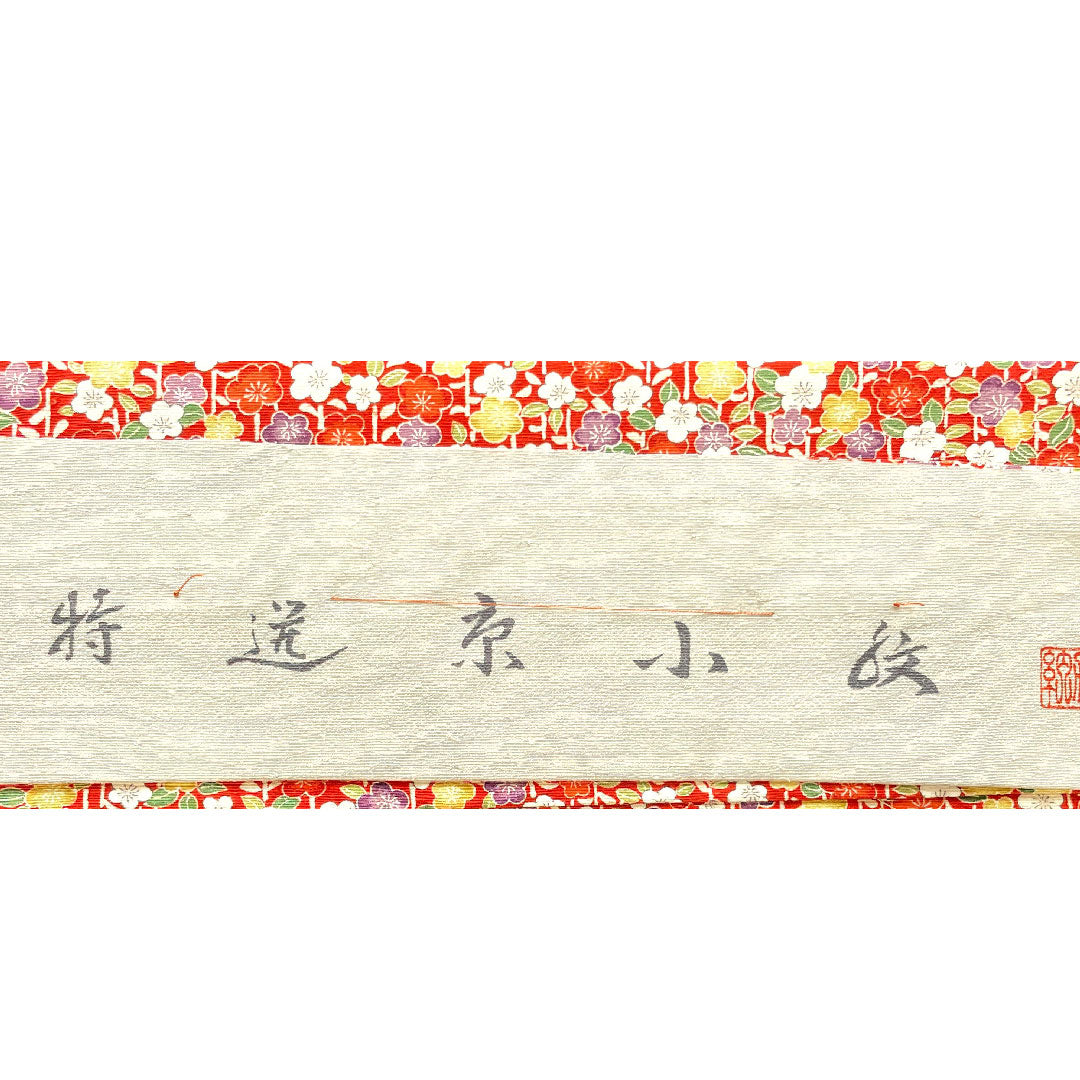 特選京小紋